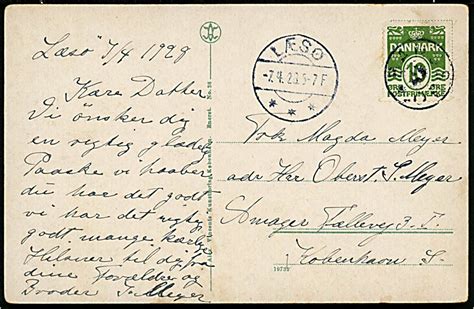 Læsø 7/4 1928
Kære Datter
Vi ønsker dig
en rigtig glædelig
Paaske vi haaber
du har det godt
vi har det rigtig
godt, mange kærlige
Hilsner til dig fra
dine Forældre og
Broder S. Meyer
LÆSØ
-7.4.28.5-7 F
DANMARK
10
ØRE ØRE
POSTFRIMÆRKE
Frk Magda Meyer
adr Hrr Oberst. S. Meyer
Amager Fælledvej 3. I.
København S.